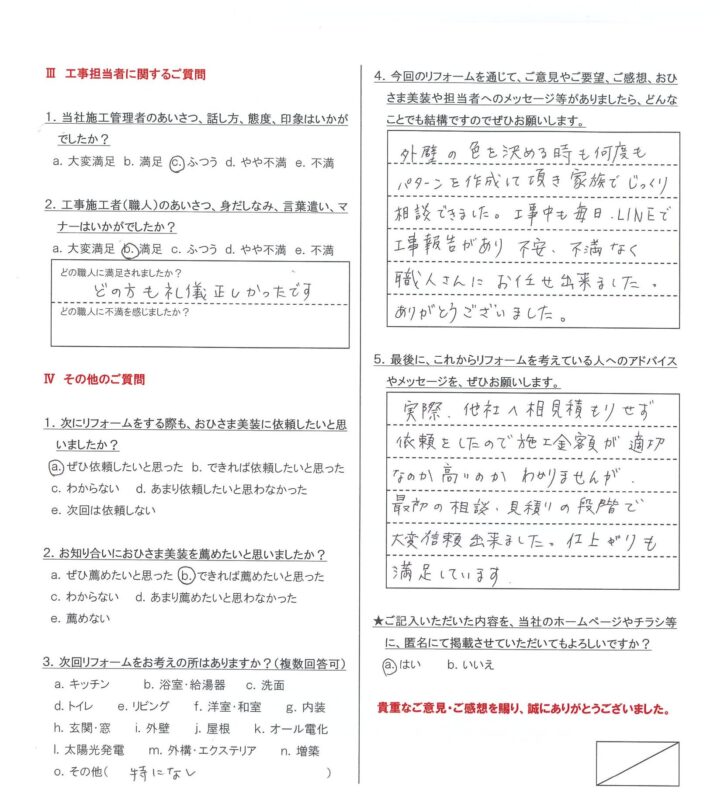 Ⅲ 工事担当者に関するご質問
1. 当社施工管理者のあいさつ、話し方、態度、印象はいかが
でしたか?
a. 大変満足 b. 満足 c. ふつう d. やや不満 e. 不満
2. 工事施工者(職人)のあいさつ、身だしなみ、言葉遣い、マ
ナーはいかがでしたか?
a. 大変満足 b. 満足 c. ふつう d. やや不満 e. 不満
どの職人に満足されましたか?
どの方も礼儀正しかったです
どの職人に不満を感じましたか?
Ⅳ その他のご質問
1. 次にリフォームをする際も、おひさま美装に依頼したいと思
いましたか?
a. ぜひ依頼したいと思った b. できれば依頼したいと思った
c. わからない d. あまり依頼したいと思わなかった
e. 次回は依頼しない
2. お知り合いにおひさま美装を薦めたいと思いましたか?
a. ぜひ薦めたいと思った b. できれば薦めたいと思った
c. わからない d. あまり薦めたいと思わなかった
e. 薦めない
3. 次回リフォームをお考えの所はありますか?(複数回答可)
a. キッチン b. 浴室・給湯器 c. 洗面
d. トイレ e. リビング f. 洋室・和室 g. 内装
h. 玄関・窓 i. 外壁 j. 屋根 k. オール電化
l. 太陽光発電 m. 外構・エクステリア n. 増築
o. その他( 特になし )
4. 今回のリフォームを通じて、ご意見やご要望、ご感想、おひ
さま美装や担当者へのメッセージ等がありましたら、どんな
ことでも結構ですのでぜひお願いします。
外壁の色を決める時も何度も
パターンを作成して頂き家族でじっくり
相談できました。工事中も毎日、LINEで
工事報告があり 不安、不満なく
職人さんに お任せ出来ました。
ありがとうございました。
5. 最後に、これからリフォームを考えている人へのアドバイス
やメッセージを、ぜひお願いします。
実際、他社へ相見積もりせず
依頼をしたので施工金額が適切
なのか高いのか わかりませんが、
最初の相談、見積りの段階で
大変信頼出来ました。仕上がりも
満足しています.
★ご記入いただいた内容を、当社のホームページやチラシ等
に、匿名にて掲載させていただいてもよろしいですか?
a. はい b. いいえ
貴重なご意見・ご感想を賜り、誠にありがとうございました。